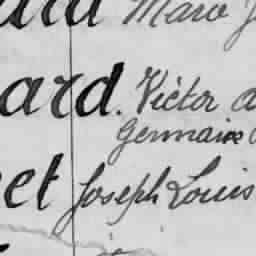 ard Marie J
ard. Victor a
Germaine
et Joseph Louis